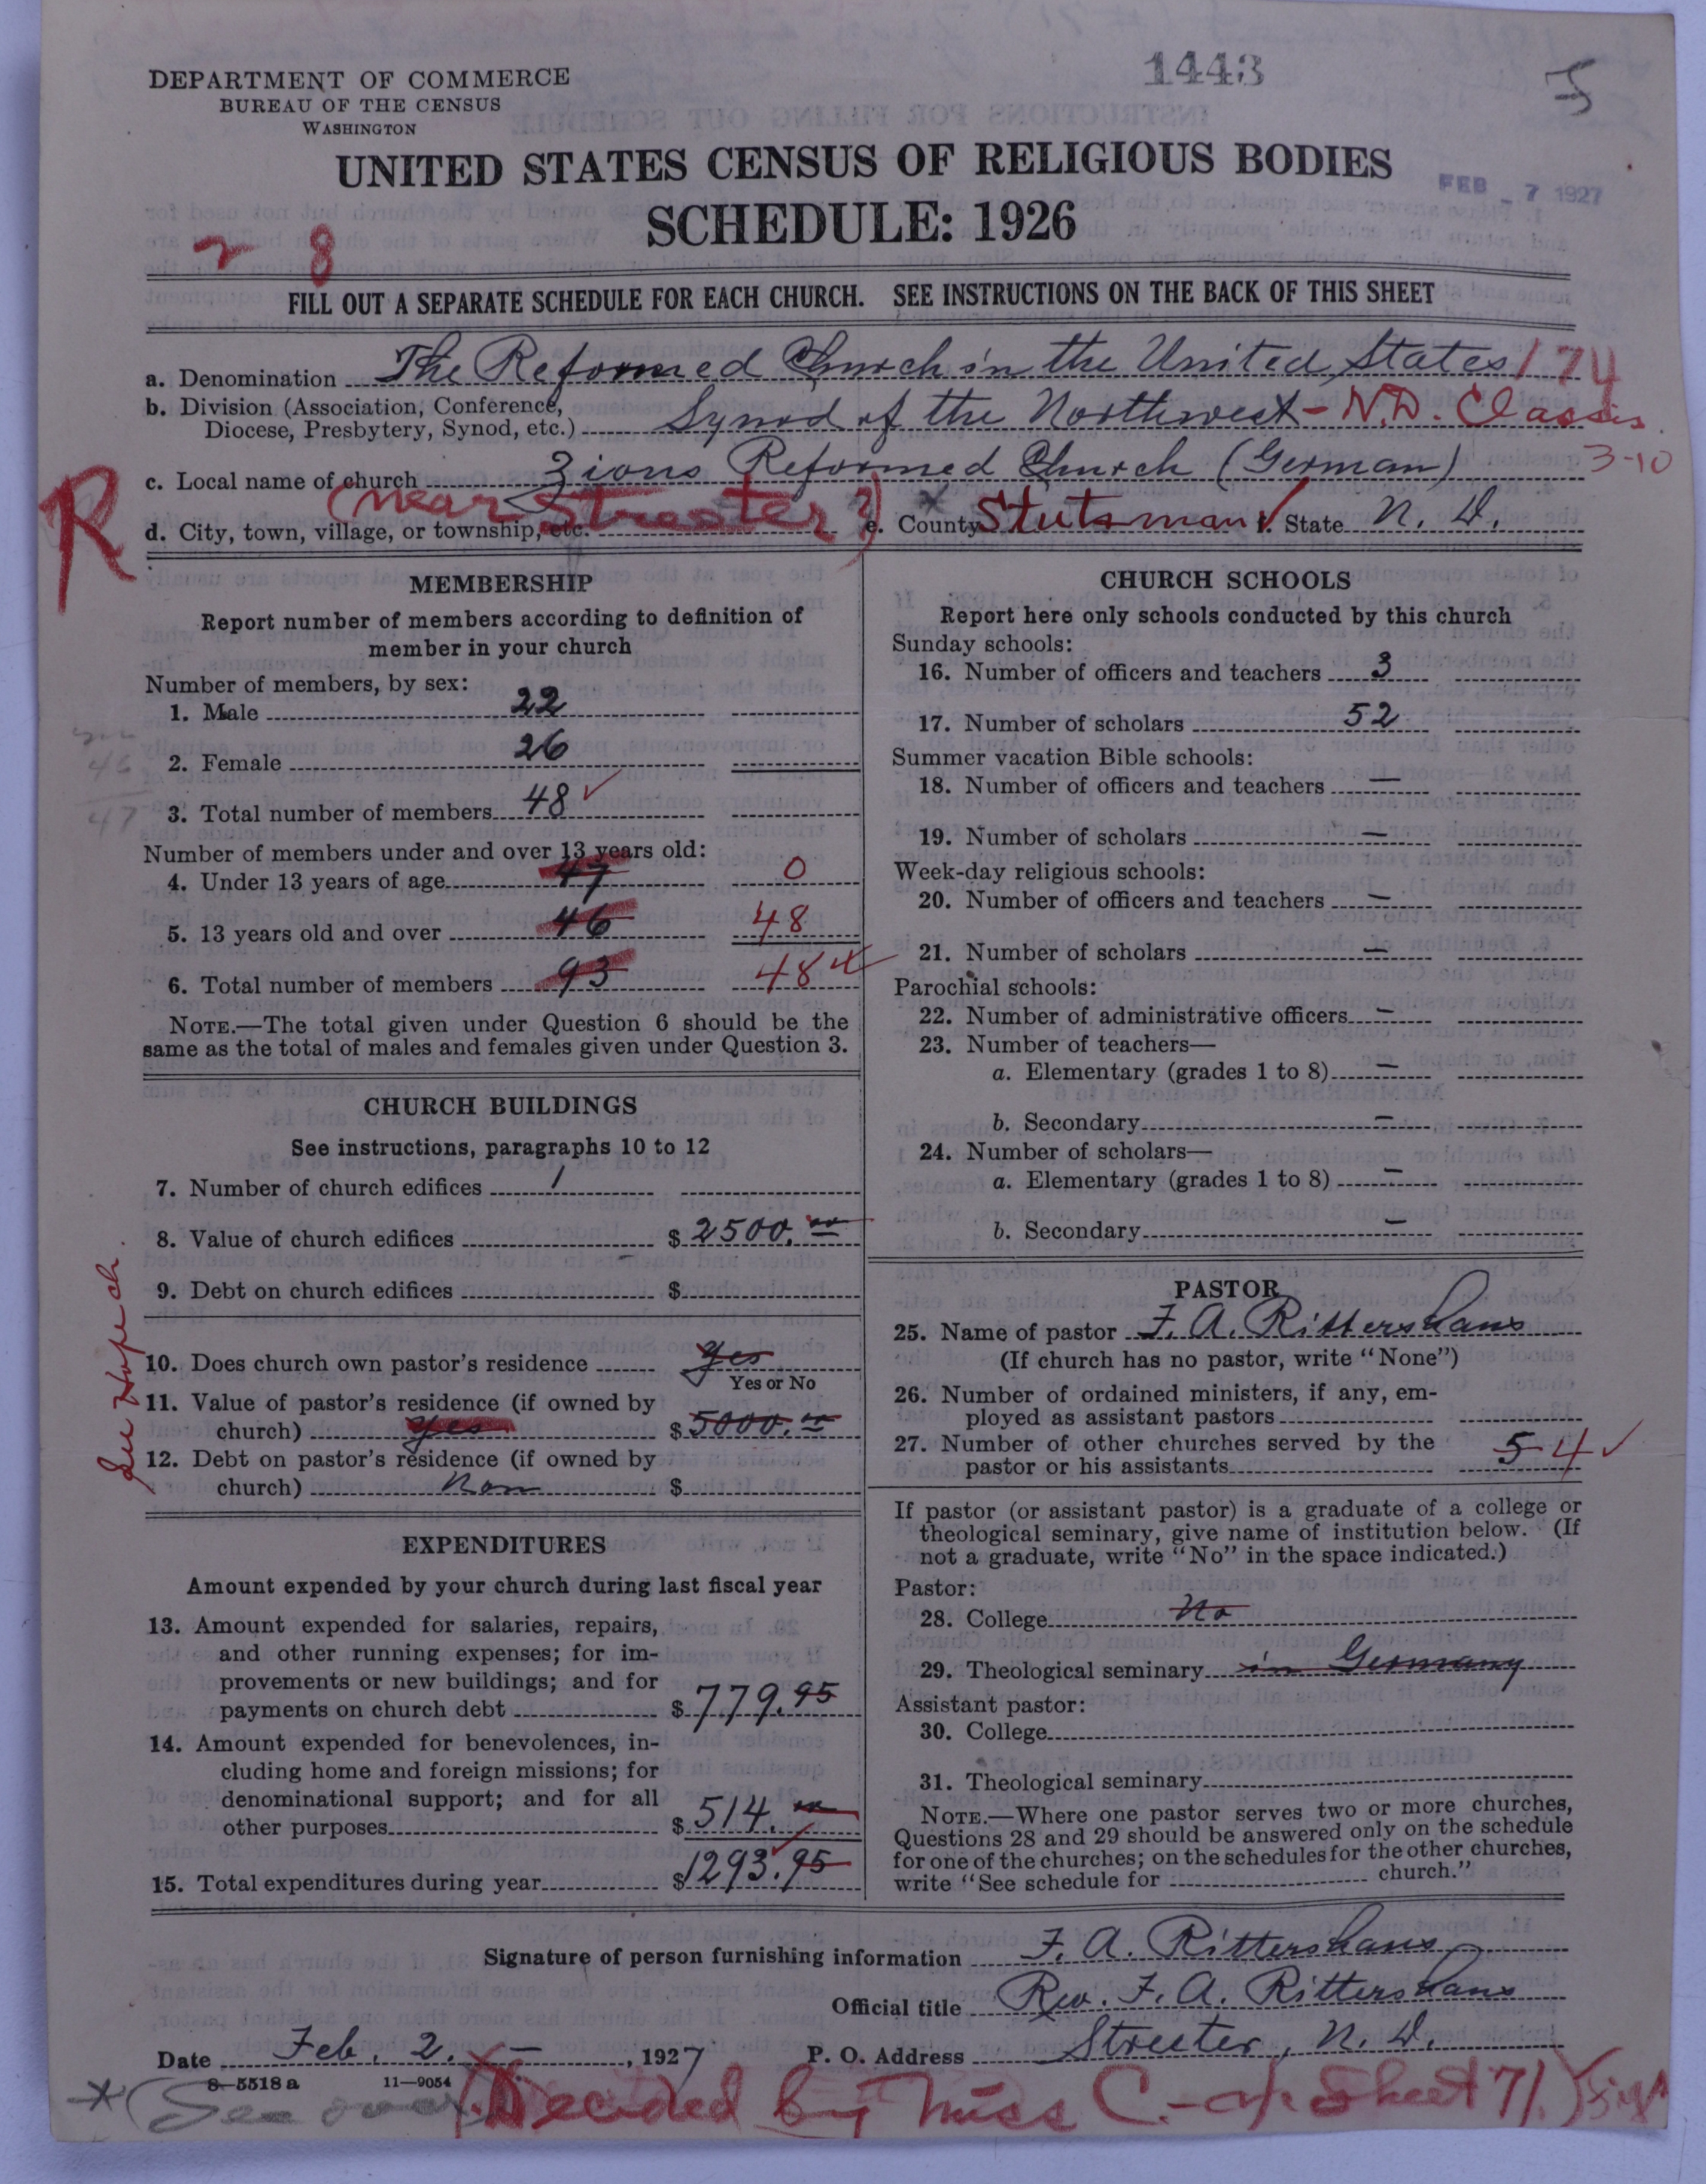 1443
DEPARTMENT OF COMMERCE
BUREAU OF THE CENSUS
WASHINGTON
UNITED STATES CENSUS OF RELIGIOUS BODIES
FEB - 7 1927
SCHEDULE: 1926
2 8
FILL OUT A SEPARATE SCHEDULE FOR EACH CHURCH. SEE INSTRUCTIONS ON THE BACK OF THIS SHEET
a. Denomination The Reformed Church in the United States 174
b. Division (Association, Conference,
Diocese, Presbytery, Synod, etc.) Synod of the Northwest - N.D. Classis
3-10
c. Local name of church Zions Reformed Church (German)
R
d. City, town, village, or township, etc. (near Streeter?) e. County Stutsman f. State N. D.
MEMBERSHIP
Report number of members according to definition of
member in your church
Number of members, by sex:
1. Male 22
2. Female 26
46
3. Total number of members 48
47
Number of members under and over 13 years old:
4. Under 13 years of age 47 0
5. 13 years old and over 46 48
6. Total number of members 93 48
NOTE.—The total given under Question 6 should be the
same as the total of males and females given under Question 3.
CHURCH BUILDINGS
See instructions, paragraphs 10 to 12
7. Number of church edifices 1
8. Value of church edifices $ 2500.00
9. Debt on church edifices $
See Hope ch.
10. Does church own pastor's residence yes
Yes or No
11. Value of pastor's residence (if owned by
church) yes $ 5000.00
12. Debt on pastor's residence (if owned by
church) Non $
EXPENDITURES
Amount expended by your church during last fiscal year
13. Amount expended for salaries, repairs,
and other running expenses; for im-
provements or new buildings; and for
payments on church debt $ 779.95
14. Amount expended for benevolences, in-
cluding home and foreign missions; for
denominational support; and for all
other purposes $ 514.00
15. Total expenditures during year $ 1293.95
CHURCH SCHOOLS
Report here only schools conducted by this church
Sunday schools:
16. Number of officers and teachers 3
17. Number of scholars 52
Summer vacation Bible schools:
18. Number of officers and teachers —
19. Number of scholars —
Week-day religious schools:
20. Number of officers and teachers —
21. Number of scholars —
Parochial schools:
22. Number of administrative officers —
23. Number of teachers—
a. Elementary (grades 1 to 8) —
b. Secondary —
24. Number of scholars—
a. Elementary (grades 1 to 8) —
b. Secondary —
PASTOR
25. Name of pastor F. A. Rittershaus
(If church has no pastor, write "None")
26. Number of ordained ministers, if any, em-
ployed as assistant pastors
27. Number of other churches served by the
pastor or his assistants 5 4
If pastor (or assistant pastor) is a graduate of a college or
theological seminary, give name of institution below. (If
not a graduate, write "No" in the space indicated.)
Pastor:
28. College No
29. Theological seminary in Germany
Assistant pastor:
30. College
31. Theological seminary
NOTE.—Where one pastor serves two or more churches,
Questions 28 and 29 should be answered only on the schedule
for one of the churches; on the schedules for the other churches,
write "See schedule for church."
Signature of person furnishing information F. A. Rittershaus
Official title Rev. F. A. Rittershaus
Date Feb. 2. , 1927 P. O. Address Streeter, N. D.
8-5518 a 11—9054
* (See over) (Decided by Miss C.